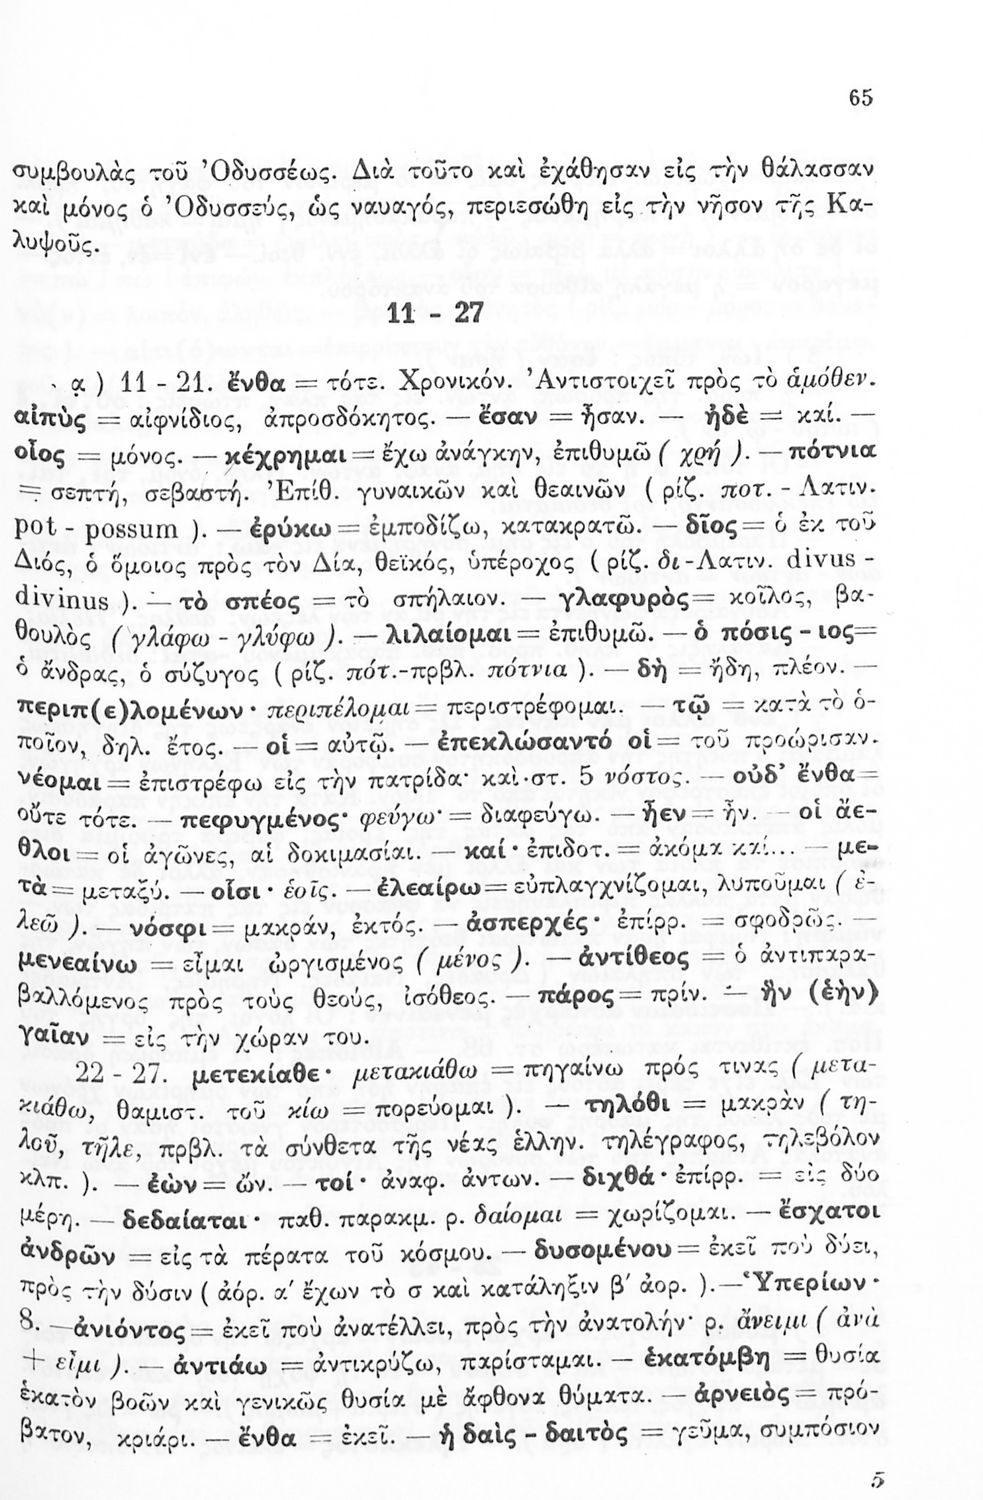 65
συμβουλὰς τοῦ Ὀδυσσέως. Διὰ τοῦτο καὶ ἐχάθησαν εἰς τὴν θάλασσαν
καὶ μόνος ὁ Ὀδυσσεύς, ὡς ναυαγός, περιεσώθη εἰς τὴν νῆσον τῆς Κα-
λυψοῦς.
11 - 27
α ) 11 - 21. ἔνθα = τότε. Χρονικόν. Ἀντιστοιχεῖ πρὸς τὸ ἁμόθεν.
αἰπὺς = αἰφνίδιος, ἀπροσδόκητος. — ἔσαν = ἦσαν. — ἠδὲ = καί. —
οἶος = μόνος. — κέχρημαι = ἔχω ἀνάγκην, ἐπιθυμῶ ( χρή ). — πότνια
= σεπτή, σεβαστή. Ἐπίθ. γυναικῶν καὶ θεαινῶν ( ρίζ. ποτ. - Λατιν.
pot - possum ). — ἐρύκω = ἐμποδίζω, κατακρατῶ. — δῖος = ὁ ἐκ τοῦ
Διός, ὁ ὅμοιος πρὸς τὸν Δία, θεϊκός, ὑπέροχος ( ρίζ. δι - Λατιν. divus -
divinus ). — τὸ σπέος = τὸ σπήλαιον. — γλαφυρὸς = κοῖλος, βα-
θουλὸς ( γλάφω - γλύφω ). — λιλαίομαι = ἐπιθυμῶ. — ὁ πόσις - ιος =
ὁ ἄνδρας, ὁ σύζυγος ( ρίζ. πότ.-πρβλ. πότνια ). — δὴ = ἤδη, πλέον. —
περιπ(ε)λομένων· περιπέλομαι = περιστρέφομαι. — τῷ = κατὰ τὸ ὁ-
ποῖον, δηλ. ἔτος. — οἱ = αὐτῷ. — ἐπεκλώσαντό οἱ = τοῦ προώρισαν.
νέομαι = ἐπιστρέφω εἰς τὴν πατρίδα· καὶ στ. 5 νόστος. — οὐδ' ἔνθα =
οὔτε τότε. — πεφυγμένος· φεύγω· = διαφεύγω. — ἦεν = ἦν. — οἱ ἄε-
θλοι = οἱ ἀγῶνες, αἱ δοκιμασίαι. — καί· ἐπιδοτ. = ἀκόμα καὶ... — με-
τὰ = μεταξύ. — οἷσι· ἑοῖς. — ἐλεαίρω = εὐπλαγχνίζομαι, λυποῦμαι ( ἐ-
λεῶ ). — νόσφι = μακράν, ἐκτός. — ἀσπερχές· ἐπίρρ. = σφοδρῶς. —
μενεαίνω = εἶμαι ὠργισμένος ( μένος ). — ἀντίθεος = ὁ ἀντιπαρα-
βαλλόμενος πρὸς τοὺς θεούς, ἰσόθεος. — πάρος = πρίν. — ἣν (ἑὴν)
γαῖαν = εἰς τὴν χώραν του.
22 - 27. μετεκίαθε· μετακιάθω = πηγαίνω πρός τινας ( μετα-
κιάθω, θαμιστ. τοῦ κίω = πορεύομαι ). — τηλόθι = μακρὰν ( τη-
λοῦ, τῆλε, πρβλ. τὰ σύνθετα τῆς νέας ἑλλην. τηλέγραφος, τηλεβόλον
κλπ. ). — ἐὼν = ὤν. — τοί· ἀναφ. ἀντων. — διχθά· ἐπίρρ. = εἰς δύο
μέρη. — δεδαίαται· παθ. παρακμ. ρ. δαίομαι = χωρίζομαι. — ἔσχατοι
ἀνδρῶν = εἰς τὰ πέρατα τοῦ κόσμου. — δυσομένου = ἐκεῖ ποὺ δύει,
πρὸς τὴν δύσιν ( ἀόρ. α' ἔχων τὸ σ καὶ κατάληξιν β' ἀορ. ). — Ὑπερίων·
8. — ἀνιόντος = ἐκεῖ ποὺ ἀνατέλλει, πρὸς τὴν ἀνατολήν· ρ. ἄνειμι ( ἀνὰ
+ εἶμι ). — ἀντιάω = ἀντικρύζω, παρίσταμαι. — ἑκατόμβη = θυσία
ἑκατὸν βοῶν καὶ γενικῶς θυσία μὲ ἄφθονα θύματα. — ἀρνειὸς = πρό-
βατον, κριάρι. — ἔνθα = ἐκεῖ. — ἡ δαὶς - δαιτὸς = γεῦμα, συμπόσιον
5